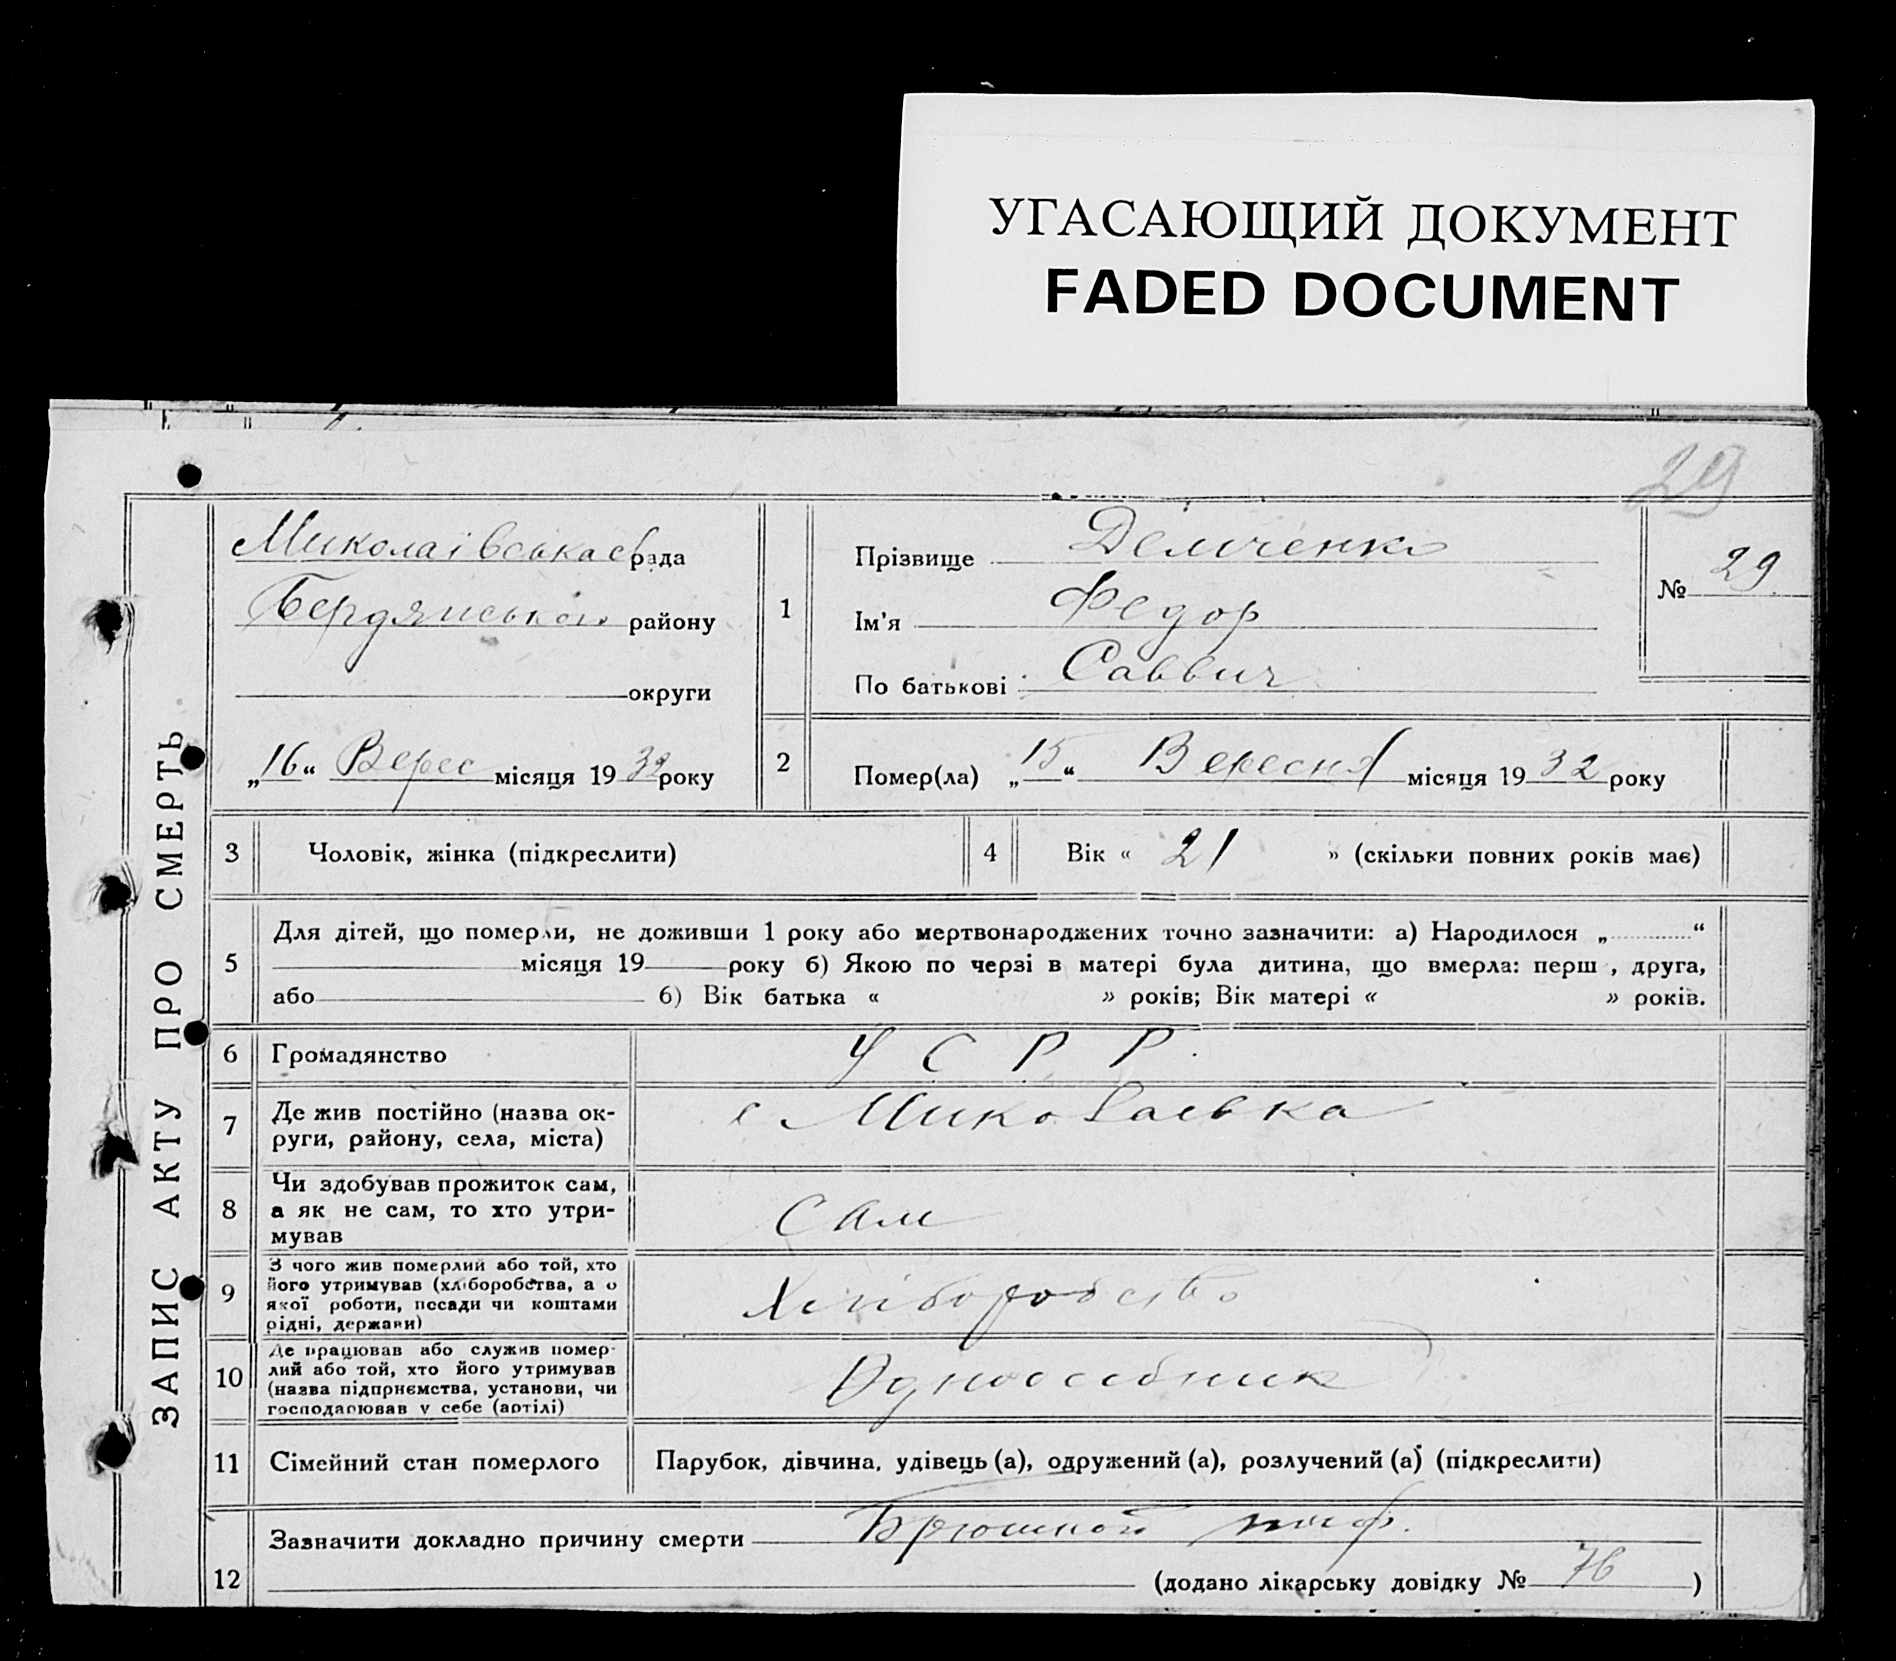 УГАСАЮЩИЙ ДОКУМЕНТ
FADED DOCUMENT
29
ЗАПИС АКТУ ПРО СМЕРТЬ
Миколаївська с/рада
Бердянського району
округи
„16“ Верес місяця 1932 року
1
Прізвище Демченко
Ім'я Федор
По батькові Саввич
№ 29
2
Помер(ла) „15“ Вересня місяця 1932 року
3 Чоловік, жінка (підкреслити)
4 Вік « 21 » (скільки повних років має)
5
Для дітей, що померли, не доживши 1 року або мертвонароджених точно зазначити: а) Народилося „ “
місяця 19 року б) Якою по черзі в матері була дитина, що вмерла: перш , друга,
або б) Вік батька « » років; Вік матері « » років.
6 Громадянство УСРР.
7
Де жив постійно (назва ок-
руги, району, села, міста)
с Миколаєвка
8
Чи здобував прожиток сам,
а як не сам, то хто утри-
мував
Сам
9
З чого жив померлий або той, хто
його утримував (хліборобства, а о
якої роботи, посади чи коштами
рідні, держави)
Хліборобство
10
Де працював або служив помер-
лий або той, хто його утримував
(назва підприємства, установи, чи
господарював у себе (артілі)
Одноосібник
11 Сімейний стан померлого Парубок, дівчина, удівець (а), одружений (а), розлучений (а) (підкреслити)
12
Зазначити докладно причину смерти Брюшной тиф.
(додано лікарську довідку № 76 )